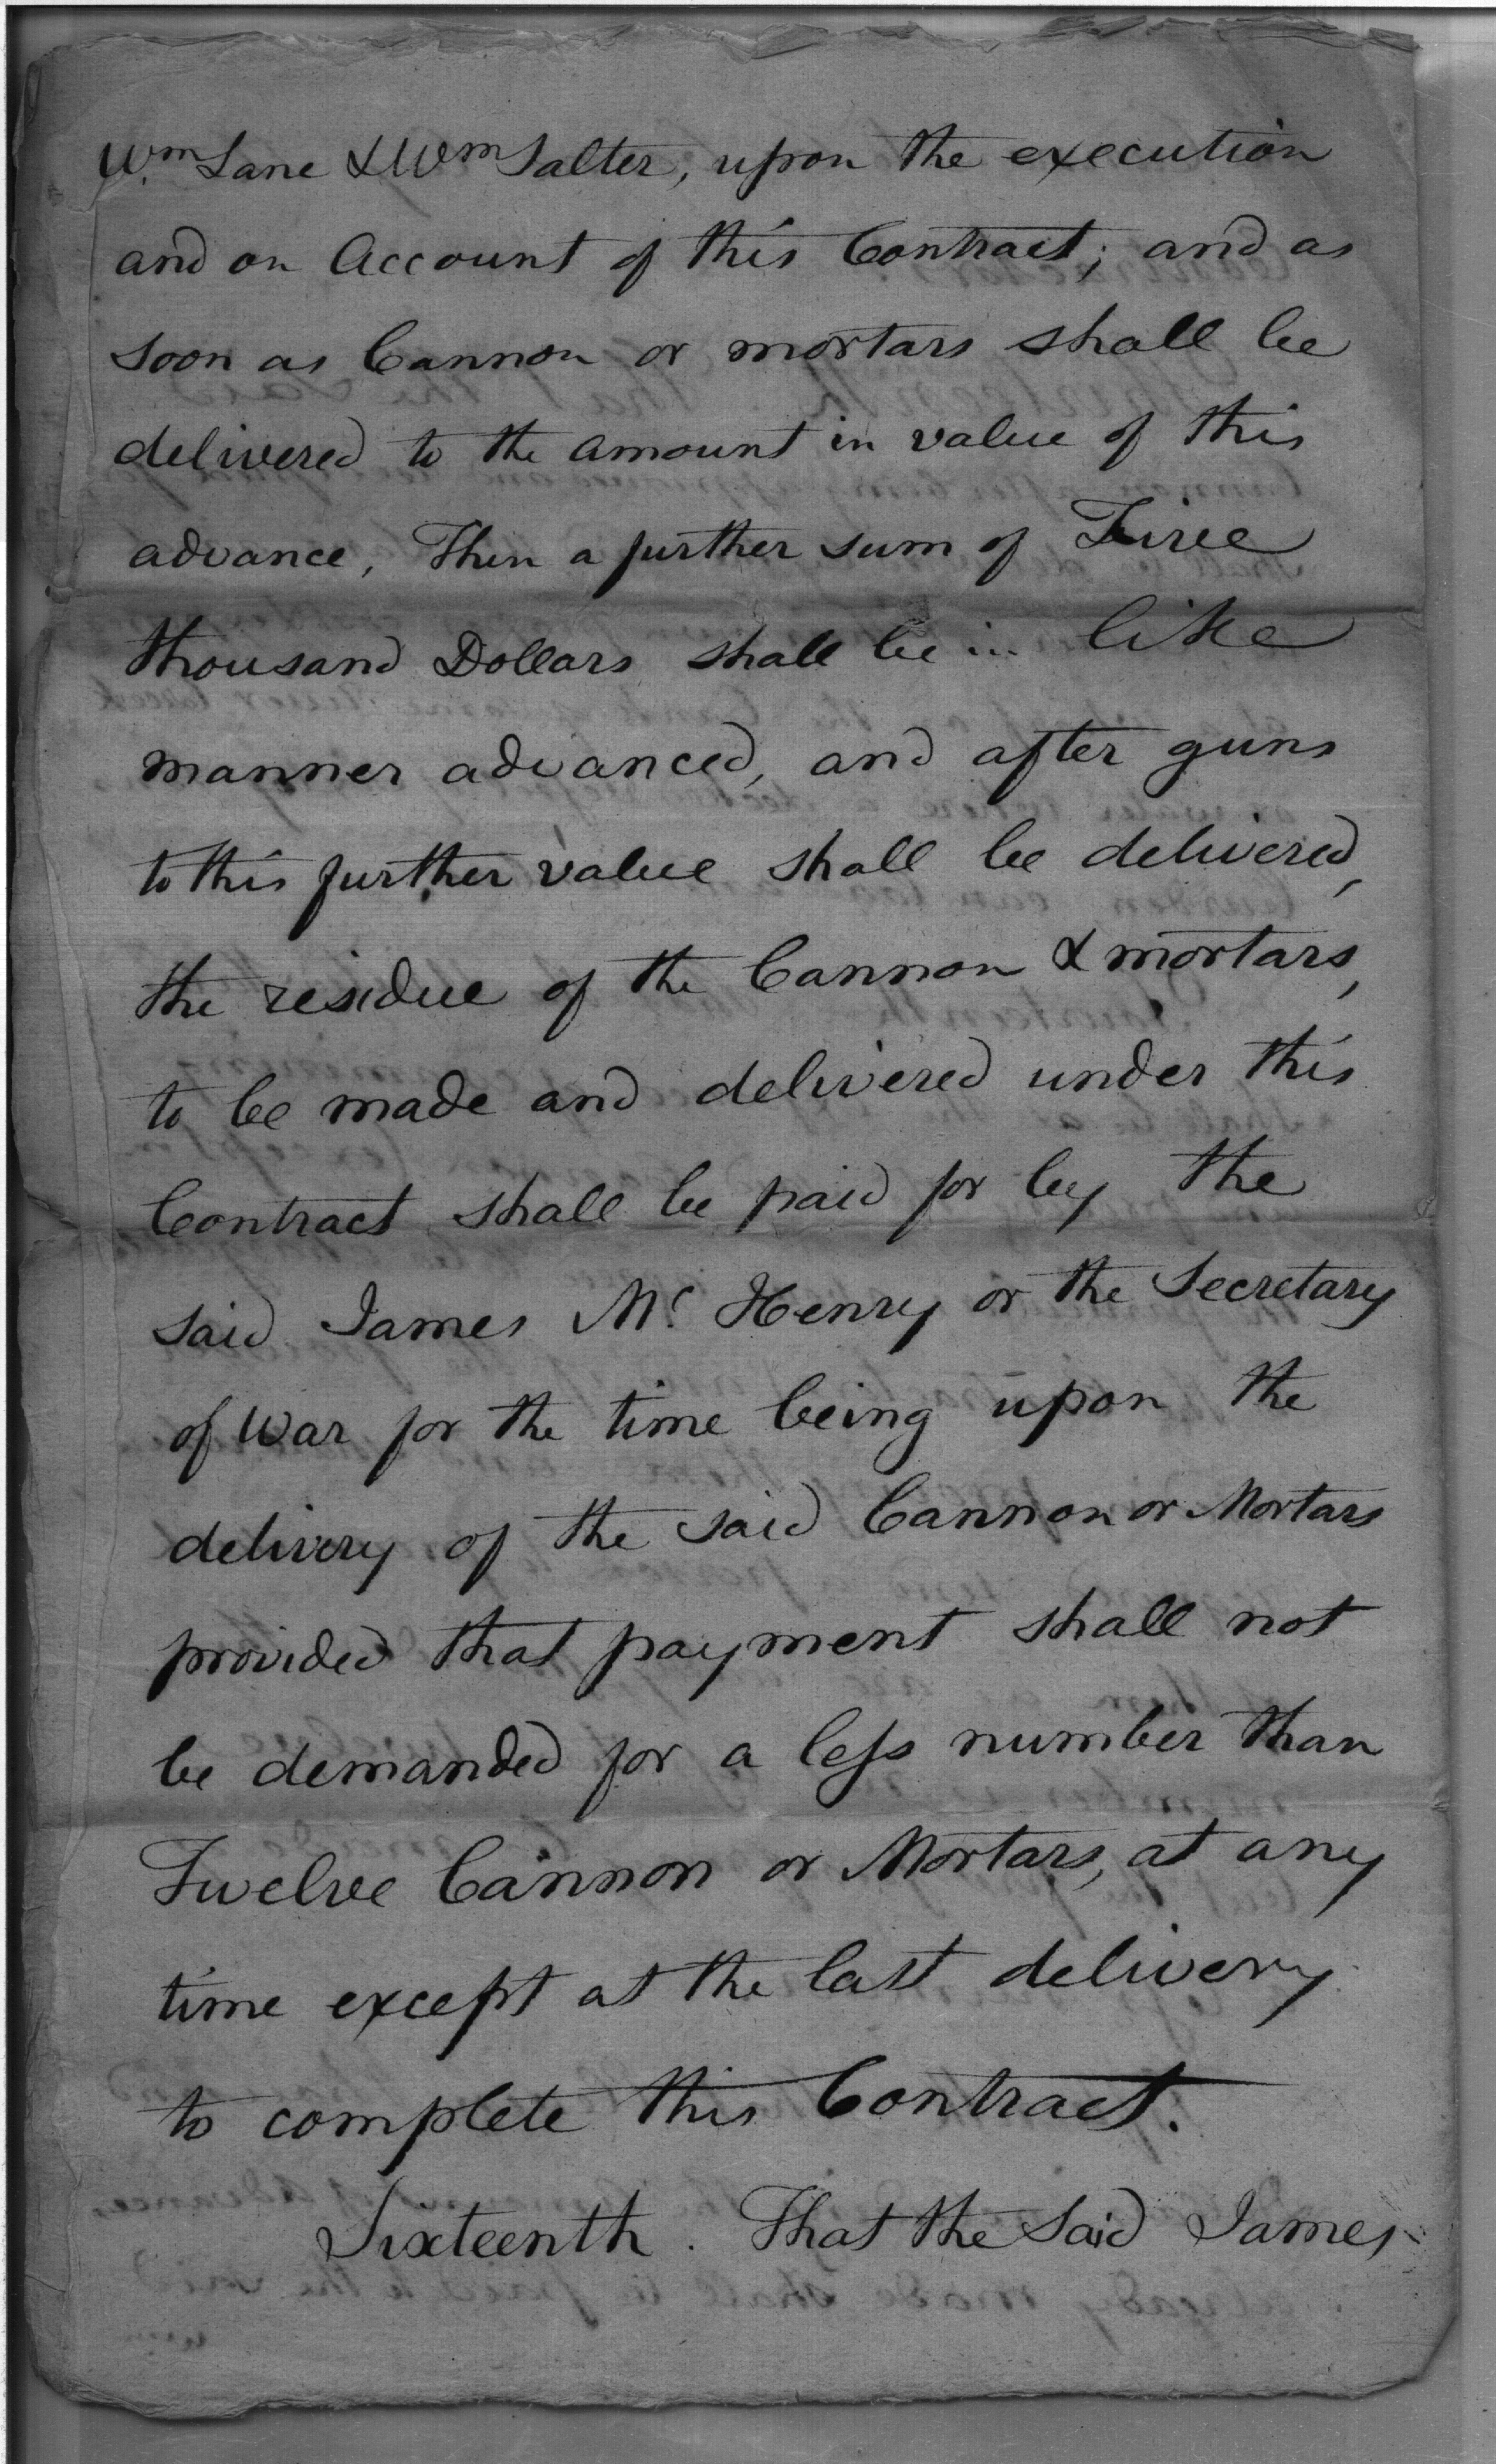 Wm Lane & Wm Salter, upon the execution
and on Account of this Contract; and as
soon as Cannon or mortars shall be
delivered to the amount in value of this
advance, Then a further sum of
thousand Dollars shall be in like
manner advanced, and after guns
to this further value shall be delivered,
the residue of the Cannon & mortars,
to be made and delivered under this
Contract shall be paid for by the
said James Mc. Henry or the Secretary
of War for the time being upon the
delivery of the said Cannon or Mortars
provided that payment shall not
be demanded for a less number than
Twelve Cannon or Mortars, at any
time except at the last delivery
to complete this Contract.
Sixteenth. That the said James